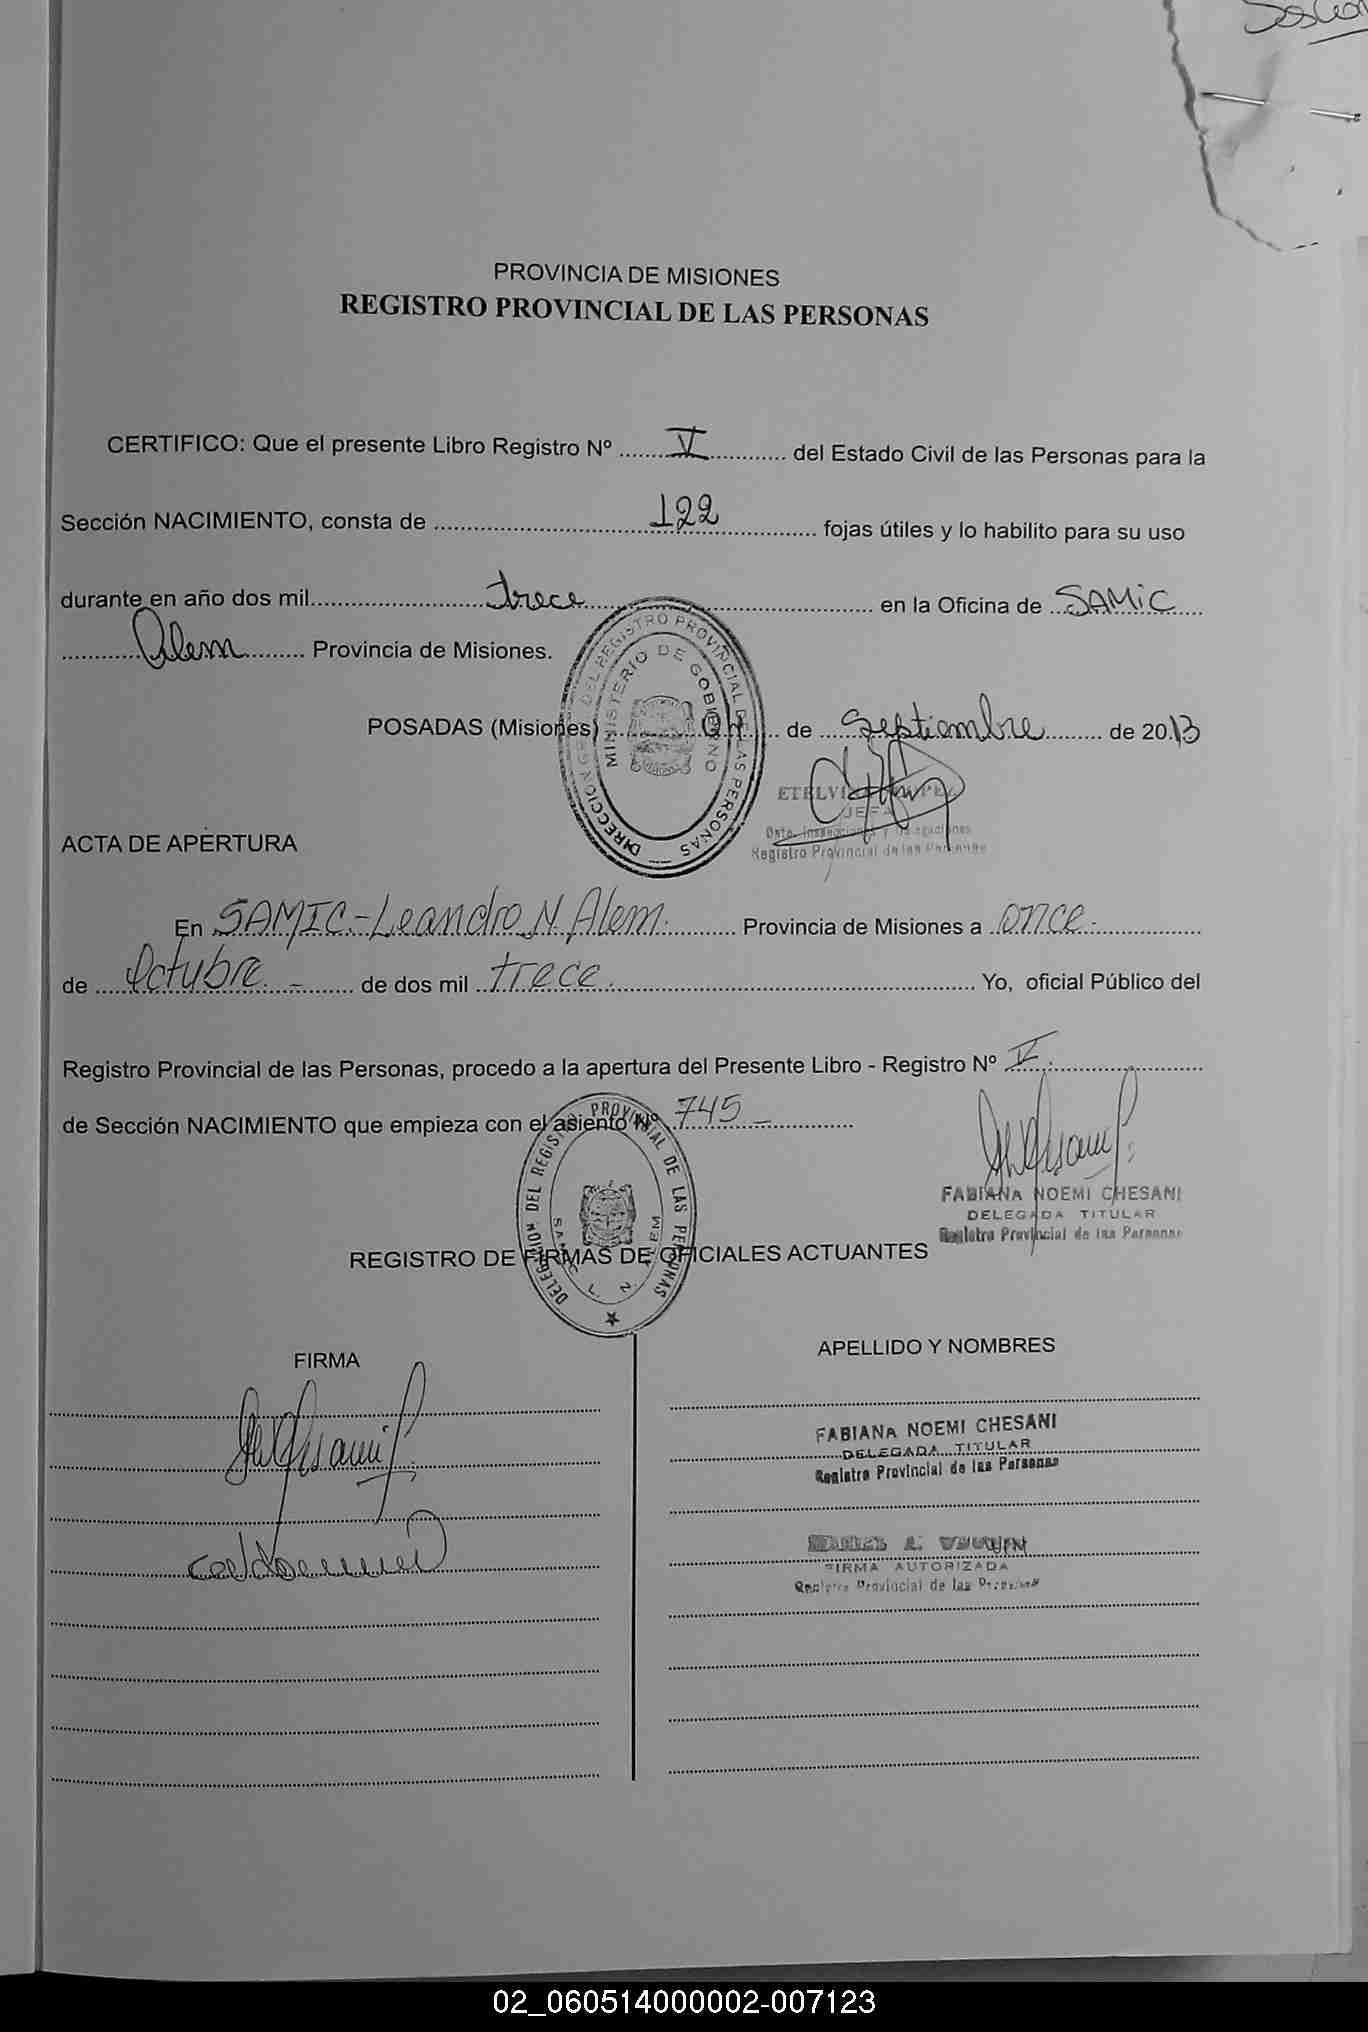 PROVINCIA DE MISIONES
REGISTRO PROVINCIAL DE LAS PERSONAS
CERTIFICO: Que el presente Libro Registro Nº V del Estado Civil de las Personas para la
Sección NACIMIENTO, consta de 122 fojas útiles y lo habilito para su uso
durante en año dos mil trece en la Oficina de SAMIC
Alem Provincia de Misiones.
POSADAS (Misiones) 04 de Septiembre de 2013
DEL REGISTRO PROVINCIAL DE LAS PERSONAS
MINISTERIO DE GOBIERNO
JEFA
Registro Provincial de las Personas
ACTA DE APERTURA
En SAMIC-Leandro N. Alem. Provincia de Misiones a once-
de Octubre - de dos mil trece. Yo, oficial Público del
Registro Provincial de las Personas, procedo a la apertura del Presente Libro - Registro Nº V.
de Sección NACIMIENTO que empieza con el asiento Nº 745 -
DELEGACION DEL REGISTRO PROVINCIAL DE LAS PERSONAS
SAMIC L. N. ALEM
FABIANA NOEMI CHESANI
DELEGADA TITULAR
Registro Provincial de las Personas
REGISTRO DE FIRMAS DE OFICIALES ACTUANTES
FIRMA
APELLIDO Y NOMBRES
FABIANA NOEMI CHESANI
DELEGADA TITULAR
Registro Provincial de las Personas
FIRMA AUTORIZADA
Registro Provincial de las Personas
02_060514000002-007123